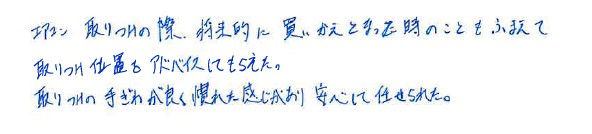 エアコン 取りつけの際、将来的に 買いかえとなった時のこともふまえて
取りつけ位置もアドバイスしてもらえた。
取りつけの手ぎわが良く慣れた感じがあり安心して任せられた。